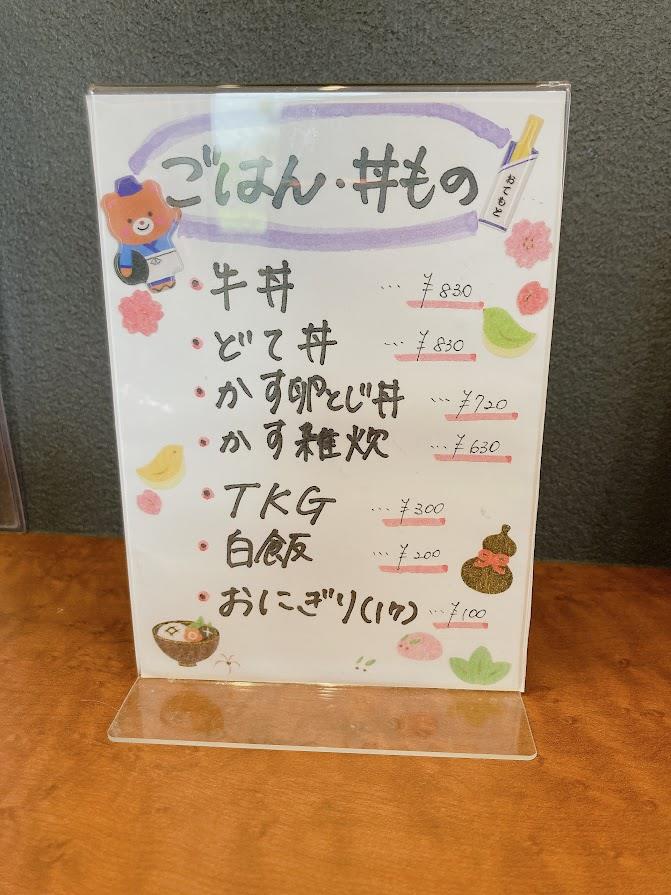 ごはん・丼もの
おてもと
・牛丼 … ¥830
・どて丼 … ¥830
・かす卵とじ丼 … ¥720
・かす雑炊 … ¥630
・TKG … ¥300
・白飯 … ¥200
・おにぎり(1ケ) … ¥100